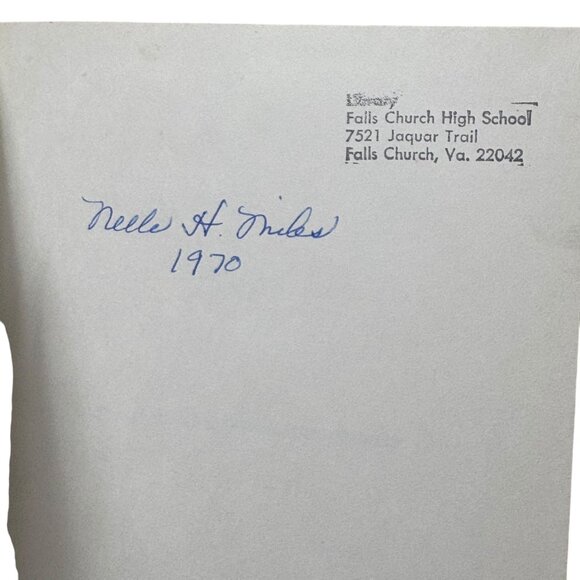 Library
Falls Church High School
7521 Jaquar Trail
Falls Church, Va. 22042
Nelle H. Miles
1970